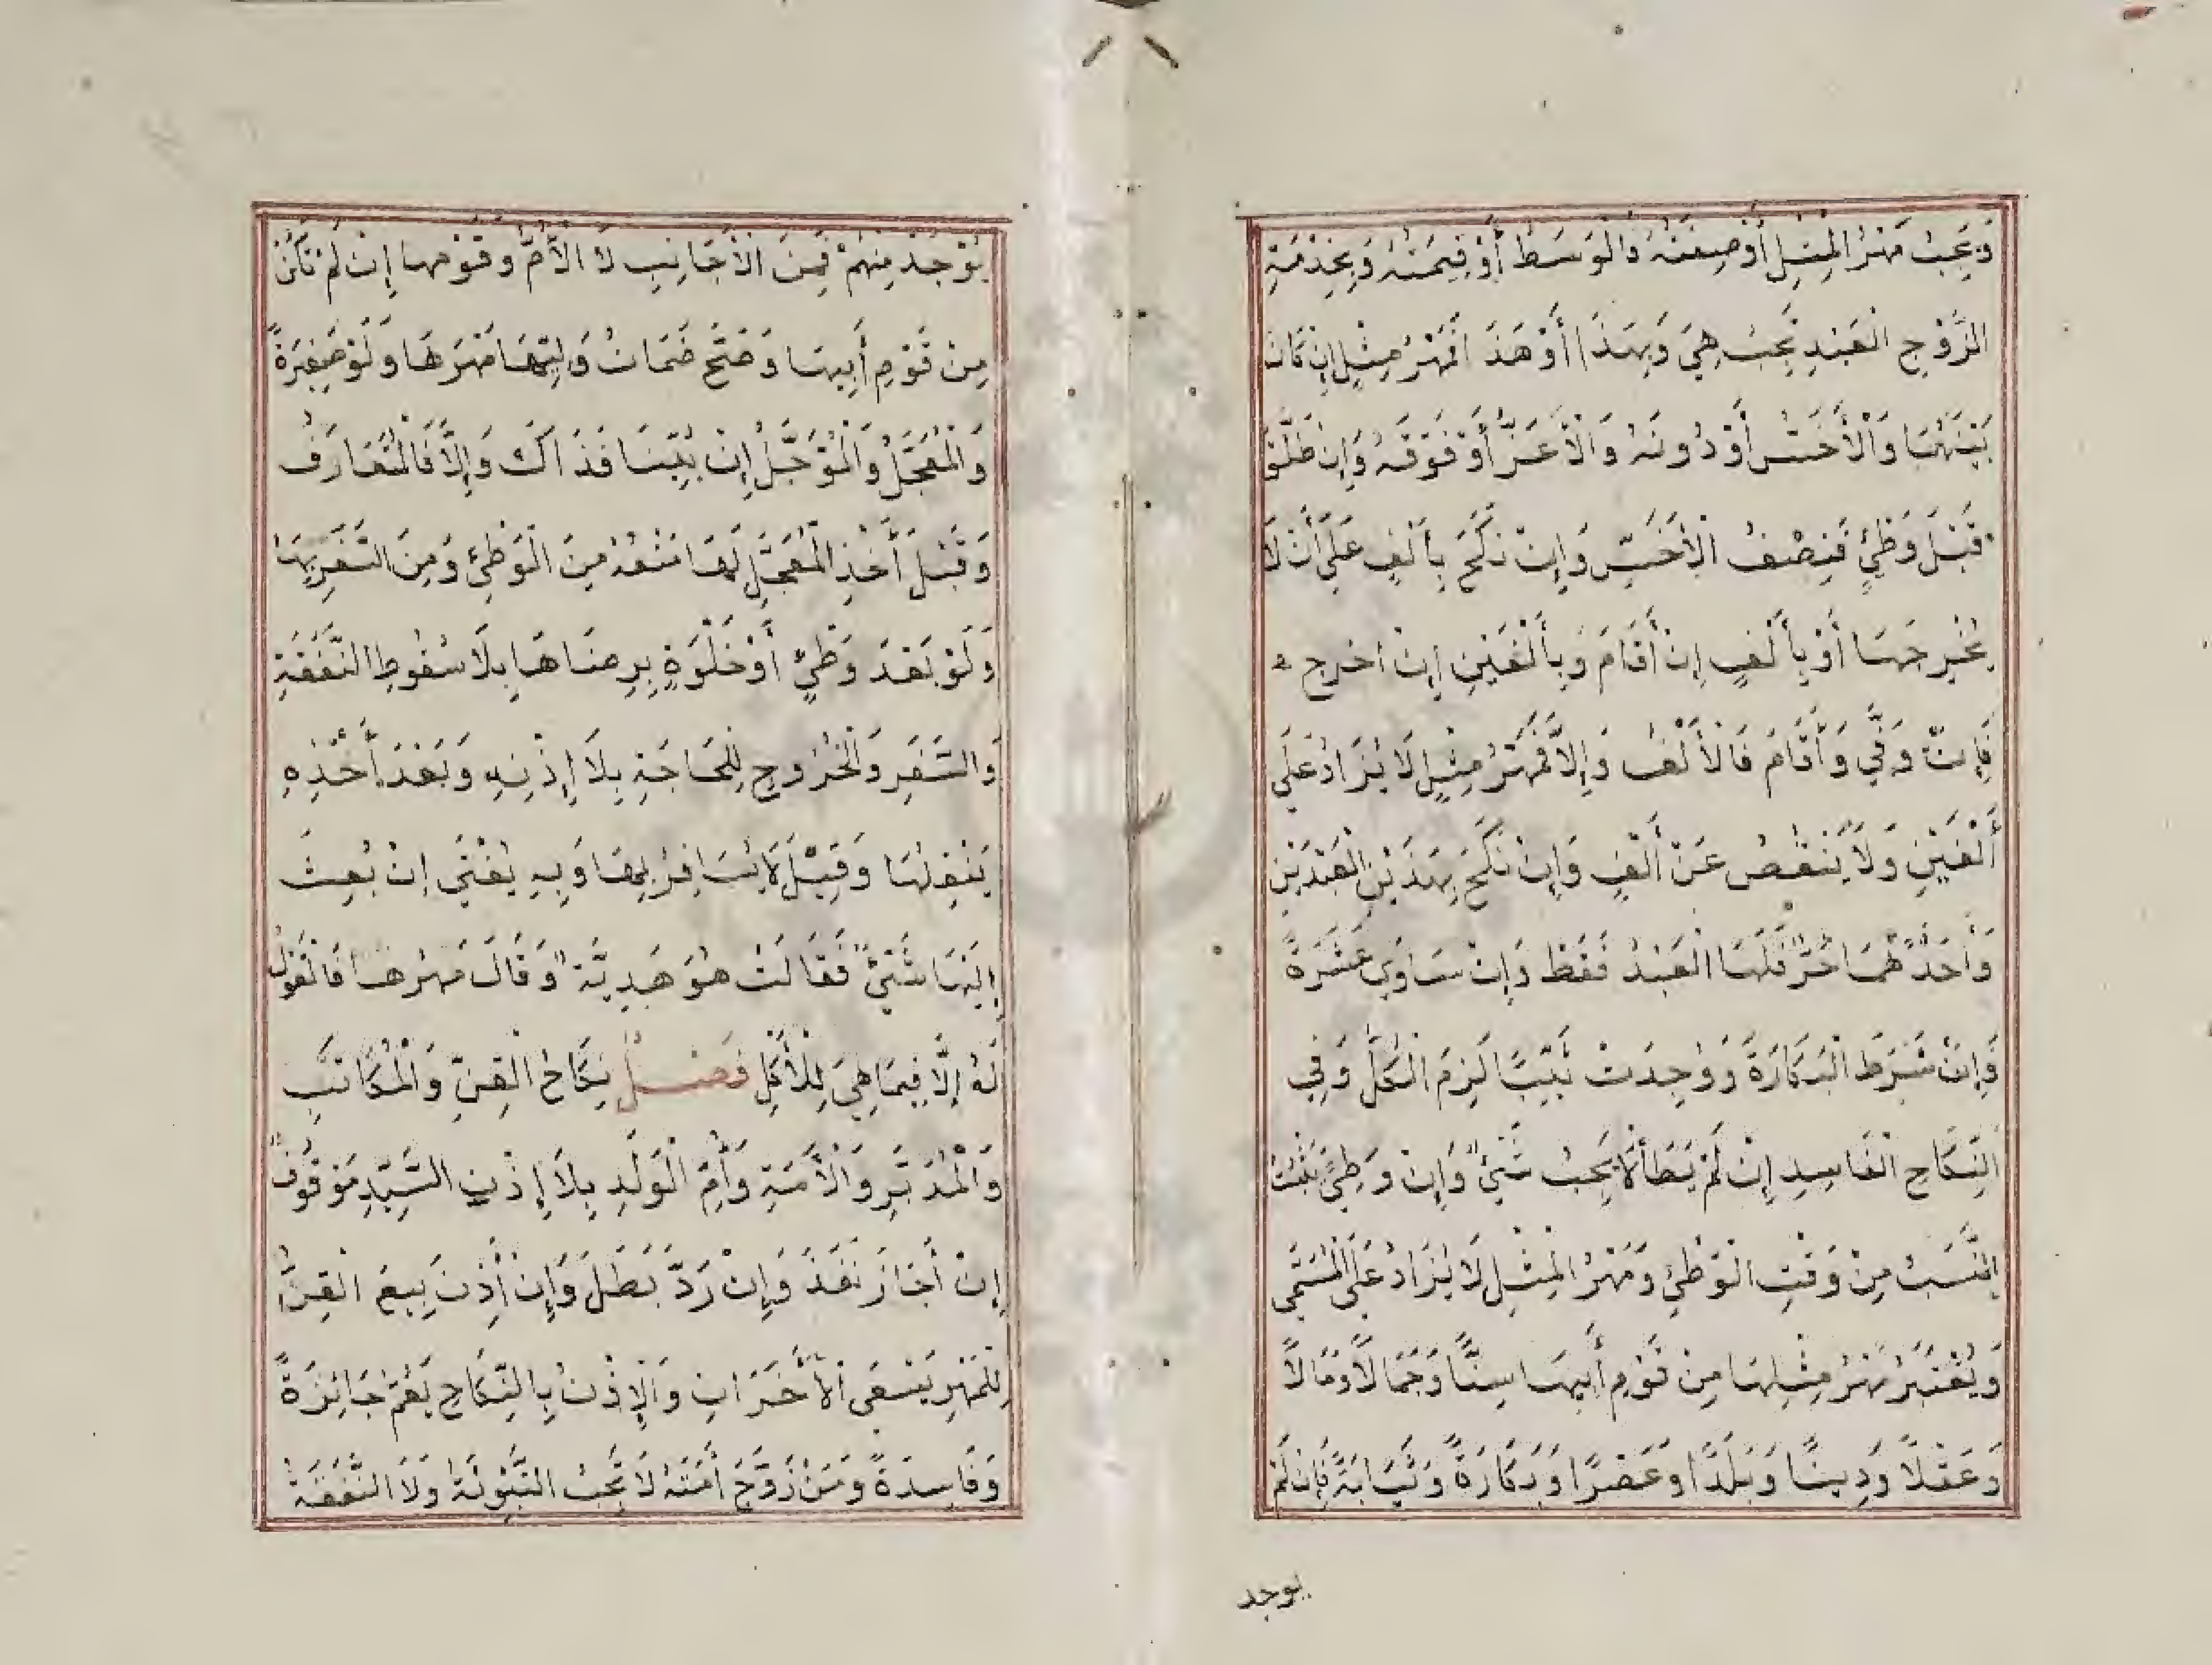 وَيَجِبُ مَهْرُ الْمِثْلِ أَوْصِفَتُهُ وَالْوَسَطُ أَوْ قِيمَتُهُ وَبِخِدْمَةِ
الزَّوْجِ الْعَبْدِ تَجِبُ هِيَ وَبِهَذَا أَوْ هَذَا فَمَهْرُ مِثْلٍ إِنْ كَانَ
بَيْنَهُمَا وَالْأَخَسُّ أَوْ دُونَهُ وَالْأَعَزُّ أَوْ فَوْقَهُ وَإِنْ طَلَّقَ
قَبْلَ وَطْئٍ فَنِصْفُ الْأَخَسِّ وَإِنْ نَكَحَ بِأَلْفٍ عَلَى أَنْ لَا
يُخْرِجَهَا أَوْ بِأَلْفٍ إِنْ أَقَامَ وَبِأَلْفَيْنِ إِنْ أخرج
فَإِنْ وَفَّى وَأَقَامَ فَالْأَلْفُ وَإِلَّا فَمَهْرُ مِثْلٍ لَا يُزَادُ عَلَى
أَلْفَيْنِ وَلَا يَنْقُصُ عَنْ أَلْفٍ وَإِنْ نَكَحَ بِهَذَيْنِ الْعَبْدَيْنِ
وَأَحَدُهُمَا حُرٌّ فَلَهَا الْعَبْدُ فَقَطْ وَإِنْ سَاوَى عَشَرَةً
وَإِنْ شَرَطَ الْبَكَارَةَ وَوُجِدَتْ ثَيِّبًا لَزِمَ الْكُلُّ وَفِي
النِّكَاحِ الْفَاسِدِ إِنْ لَمْ يَطَأْ لَا يَجِبُ شَيْئٌ وَإِنْ وَطِئَ يَثْبُتُ
النَّسَبُ مِنْ وَقْتِ الْوَطْئِ وَمَهْرُ الْمِثْلِ لَا يُزَادُ عَلَى الْمُسَمَّى
وَيُعْتَبَرُ مَهْرُ مِثْلِهَا مِنْ قَوْمِ أَبِيهَا سِنًّا وَجَمَالًا وَمَالًا
وَعَقْلًا وَدِينًا وَبَلَدًا وَعَصْرًا وَبَكَارَةً وَثَيَابَةً فَإِنْ لَمْ
يوجد
يُوْجَدْ مِنْهُمْ فَمِنَ الْأَجَانِبِ لَا الْأُمُّ وَقَوْمُهَا إِنْ لَمْ تَكُنْ
مِنْ قَوْمِ أَبِيهَا وَصَحَّ ضَمَانُ وَلِيِّهَا مَهْرَهَا وَلَوْ صَغِيرَةً
وَالْمُعَجَّلُ وَالْمُؤَجَّلُ إِنْ بُيِّنَا فَذَاكَ وَإِلَّا فَالْمُتَعَارَفُ
وَقَبْلَ أَخْذِ الْمُعَجَّلِ لَهَا مَنْعُهُ مِنَ الْوَطْئِ وَمِنَ السَّفَرِ بِهَا
وَلَوْ بَعْدَ وَطْئٍ أَوْ خَلْوَةٍ بِرِضَاهَا بِلَا سُقُوطِ النَّفَقَةِ
وَالسَّفَرِ وَالْخُرُوجِ لِلْحَاجَةِ بِلَا إِذْنِهِ وَبَعْدَ أَخْذِهِ
يَنْقُلُهَا وَقِيْلَ لَا يُسَافِرُ بِهَا وَبِهِ يُفْتَى إِنْ بُعِثَ
إِلَيْهَا شَيْئٌ فَقَالَتْ هُوَ هَدِيَّةٌ وَقَالَ مَهْرُهَا فَالْقَوْلُ
لَهُ إِلَّا فِيمَا هِيَ لِلْأَكْلِ فَصْلٌ نِكَاحُ الْقِنِّ وَالْمُكَاتَبِ
وَالْمُدَبَّرِ وَالْأَمَةِ وَأُمِّ الْوَلَدِ بِلَا إِذْنِ السَّيِّدِ مَوْقُوفٌ
إِنْ أَجَازَ نَفَذَ وَإِنْ رَدَّ بَطَلَ وَإِنْ أَذِنَ بِيعَ الْقِنُّ
لِلْمَهْرِ يَسْعَى الْأَخَرَانِ وَالْإِذْنُ بِالنِّكَاحِ يَعُمُّ جَائِزَةً
وَفَاسِدَةً وَمَنْ زَوَّجَ أَمَتَهُ لَا تَجِبُ التَّبْوِئَةُ وَلَا النَّفَقَةُ